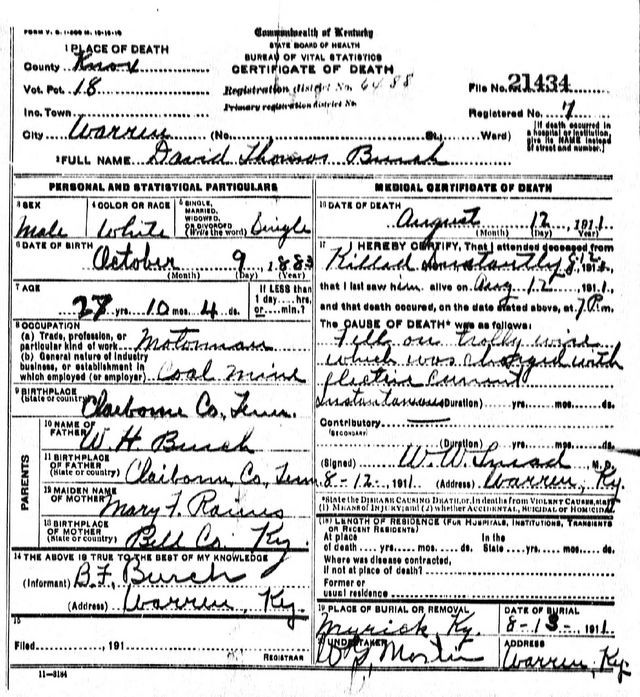 FORM V. S. 1-
Commonwealth of Kentucky
STATE BOARD OF HEALTH
BUREAU OF VITAL STATISTICS
CERTIFICATE OF DEATH
1 PLACE OF DEATH
County Knox
Vot. Pct. 18
Inc. Town
City Warren (No. St.; Ward)
Registration district No. 6488
Primary registration district No.
File No. 21434
Registered No. 7
[If death occurred in a hospital or institution, give its NAME instead of street and number.]
2 FULL NAME David Thomas Burch
PERSONAL AND STATISTICAL PARTICULARS
3 SEX
Male
4 COLOR OR RACE
White
5 SINGLE, MARRIED, WIDOWED, OR DIVORCED (Write the word) Single
6 DATE OF BIRTH
October 9, 1883
(Month) (Day) (Year)
7 AGE
27 yrs. 10 mos. 4 ds.
If LESS than 1 day....hrs. or....min.?
8 OCCUPATION
(a) Trade, profession, or particular kind of work Motorman
(b) General nature of industry business, or establishment in which employed (or employer) Coal Mine
9 BIRTHPLACE
(State or country) Claiborne Co, Tenn.
PARENTS
10 NAME OF FATHER W H Burch
11 BIRTHPLACE OF FATHER (State or country) Claiborne, Co, Tenn
12 MAIDEN NAME OF MOTHER Mary F. Raines
13 BIRTHPLACE OF MOTHER (State or country) Bell Co. Ky.
14 THE ABOVE IS TRUE TO THE BEST OF MY KNOWLEDGE
(Informant) B.F. Burch
(Address) Warren, Ky.
15
Filed, 191
REGISTRAR
11-3184
MEDICAL CERTIFICATE OF DEATH
16 DATE OF DEATH
August 12, 1911
(Month) (Day) (Year)
17 I HEREBY CERTIFY, That I attended deceased from
Killed Instantly 8/12, 1911,
that I last saw him alive on Aug 12, 1911,
and that death occurred, on the date stated above, at 7 P.m.
The CAUSE OF DEATH* was as follows:
Fell on trolly wire
which was charged with
Electric Current
Instantaneous (Duration) yrs. mos. ds.
Contributory
(SECONDARY)
(Duration) yrs. mos. ds.
(Signed) W. W. M.D.
8-12, 1911 (Address) Warren, Ky.
*State the DISEASE CAUSING DEATH, or, in deaths from VIOLENT CAUSES, state (1) MEANS OF INJURY; and (2) whether ACCIDENTAL, SUICIDAL or HOMICIDAL
18 LENGTH OF RESIDENCE (FOR HOSPITALS, INSTITUTIONS, TRANSIENTS OR RECENT RESIDENTS)
At place of death yrs. mos. ds. In the State yrs. mos. ds.
Where was disease contracted, if not at place of death?
Former or usual residence
19 PLACE OF BURIAL OR REMOVAL
Myrick, Ky.
DATE OF BURIAL
8-13-, 1911
20 UNDERTAKER
ADDRESS
Warren, Ky.